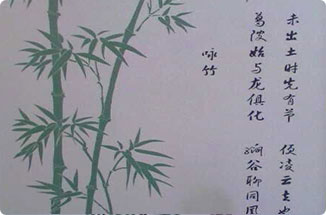 未出土时先有节 便凌云去也
葛陂始与龙俱化 嶰谷聊同凤
咏竹